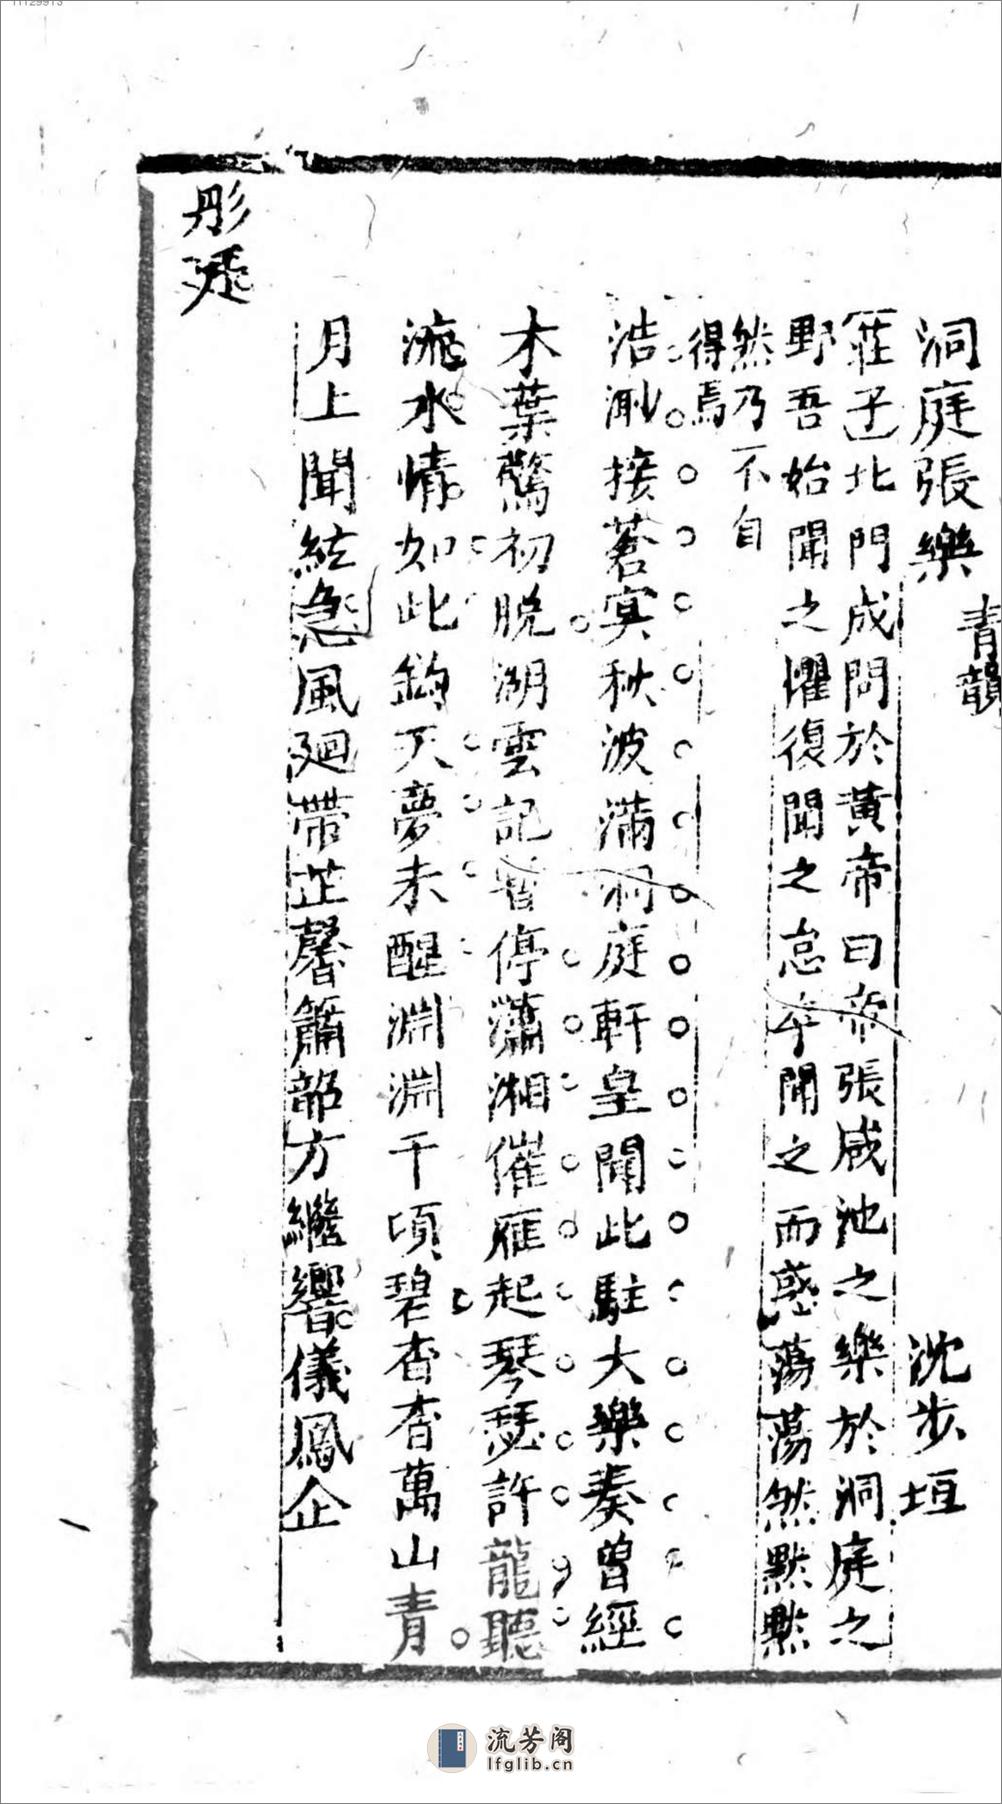 洞庭張樂 青韻 沈步垣
莊子北門成問於黃帝曰帝張咸池之樂於洞庭之
野吾始聞之懼復聞之怠卒聞之而惑蕩蕩然默默
然乃不自
得焉
浩渺接蒼冥秋波滿洞庭軒皇聞此駐大樂奏曾經
木葉驚初脫湖雲記暫停瀟湘催雁起琴瑟許龍聽
流水情如此鈞天夢未醒淵淵千頃碧杳杳萬山青
月上聞絃急風廻帶芷馨簫韶方繼響儀鳳企
彤廷
流芳阁
lfglib.cn